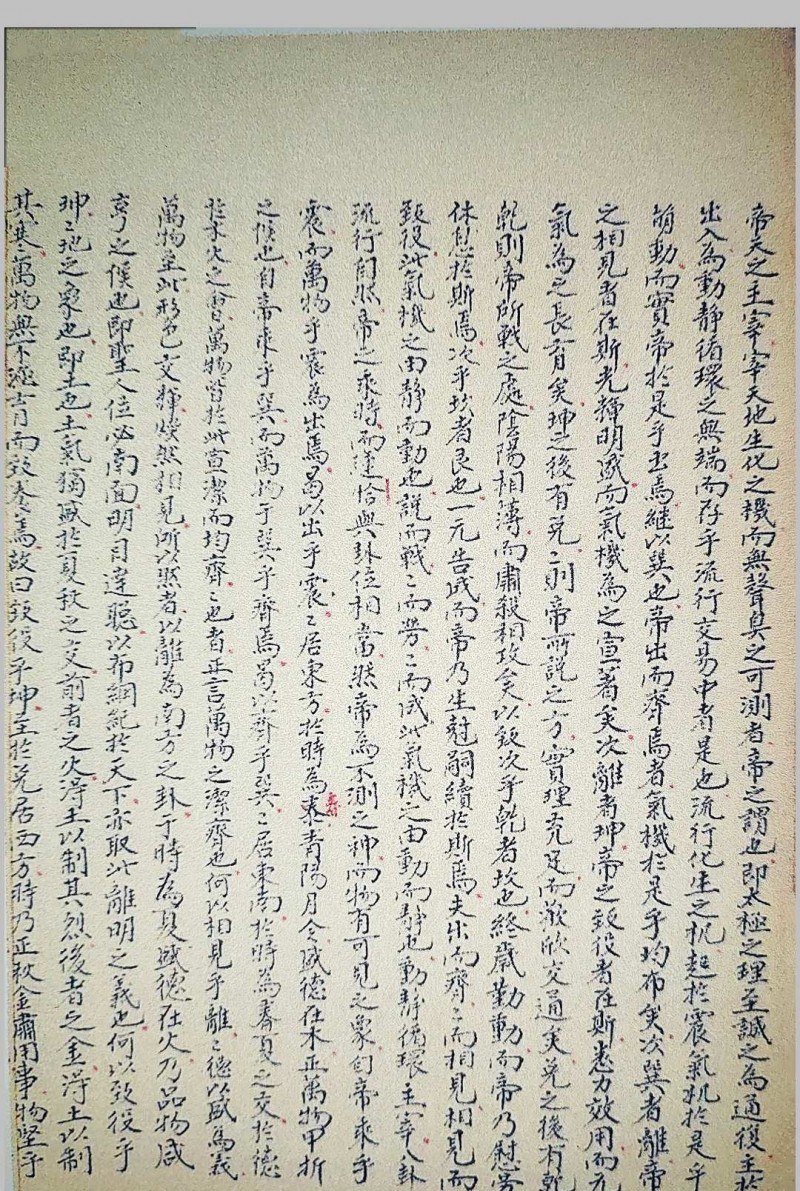 帝天之主宰宰天地生化之機而無聲臭之可測者帝之謂也即太極之理至誠之為通復主於
出入為動靜循環之無端而存乎流行交易中者是也流行化生之机起於震氣机於是乎
萌動而實帝於是乎出焉繼以巽也帝出而齊焉者氣機於是乎均布矣次巽者離帝
之相見者在斯光輝明盛而氣機為之宣著矣次離者坤帝之致役者在斯悉力效用而元
氣為之長育矣坤之後有兌二則帝所説之方實理充足而歡欣交通矣兌之後有乾
乾則帝所戰之處陰陽相薄而肅殺相攻矣以致次乎乾者坎也終歲勤動而帝乃慰勞
休息於斯焉次乎坎者艮也一元告成而帝乃生 嗣續於斯焉夫出而齊二而相見相見而
致役此氣機之由靜而動也説而戰二而勞二而成此氣機之由動而靜也動靜循環主宰八卦
流行自然帝之乘時而運恰與卦位相當然帝為不測之神而物有可見之象自帝乘乎
震而萬物乎震為出焉曷以出乎震二居東方於時為泰春青陽月令盛德在木正萬物甲折
之候也自帝乘乎巽而萬物乎巽乎齊焉曷以齊乎巽二居東南於時為春夏之交於德
於木火之會萬物皆於此宣潔而均齊二也者正言萬物之潔齊也何以相見乎離二德以盛為義
萬物至此形色交輝煥然相見所以然者以離為南方之卦于時為夏盛德在火乃品物咸
亨之候也即聖人位必南面明目達聰以布綱紀於天下亦取此離明之義也何以致役乎
坤二地之象也即土也土氣獨盛於夏秋之交前者之火得土以制其烈後者之金得土以制
其寒萬物無不 育而致養焉故曰致役乎坤至於兌居西方時乃正秋金肅用事物堅乎